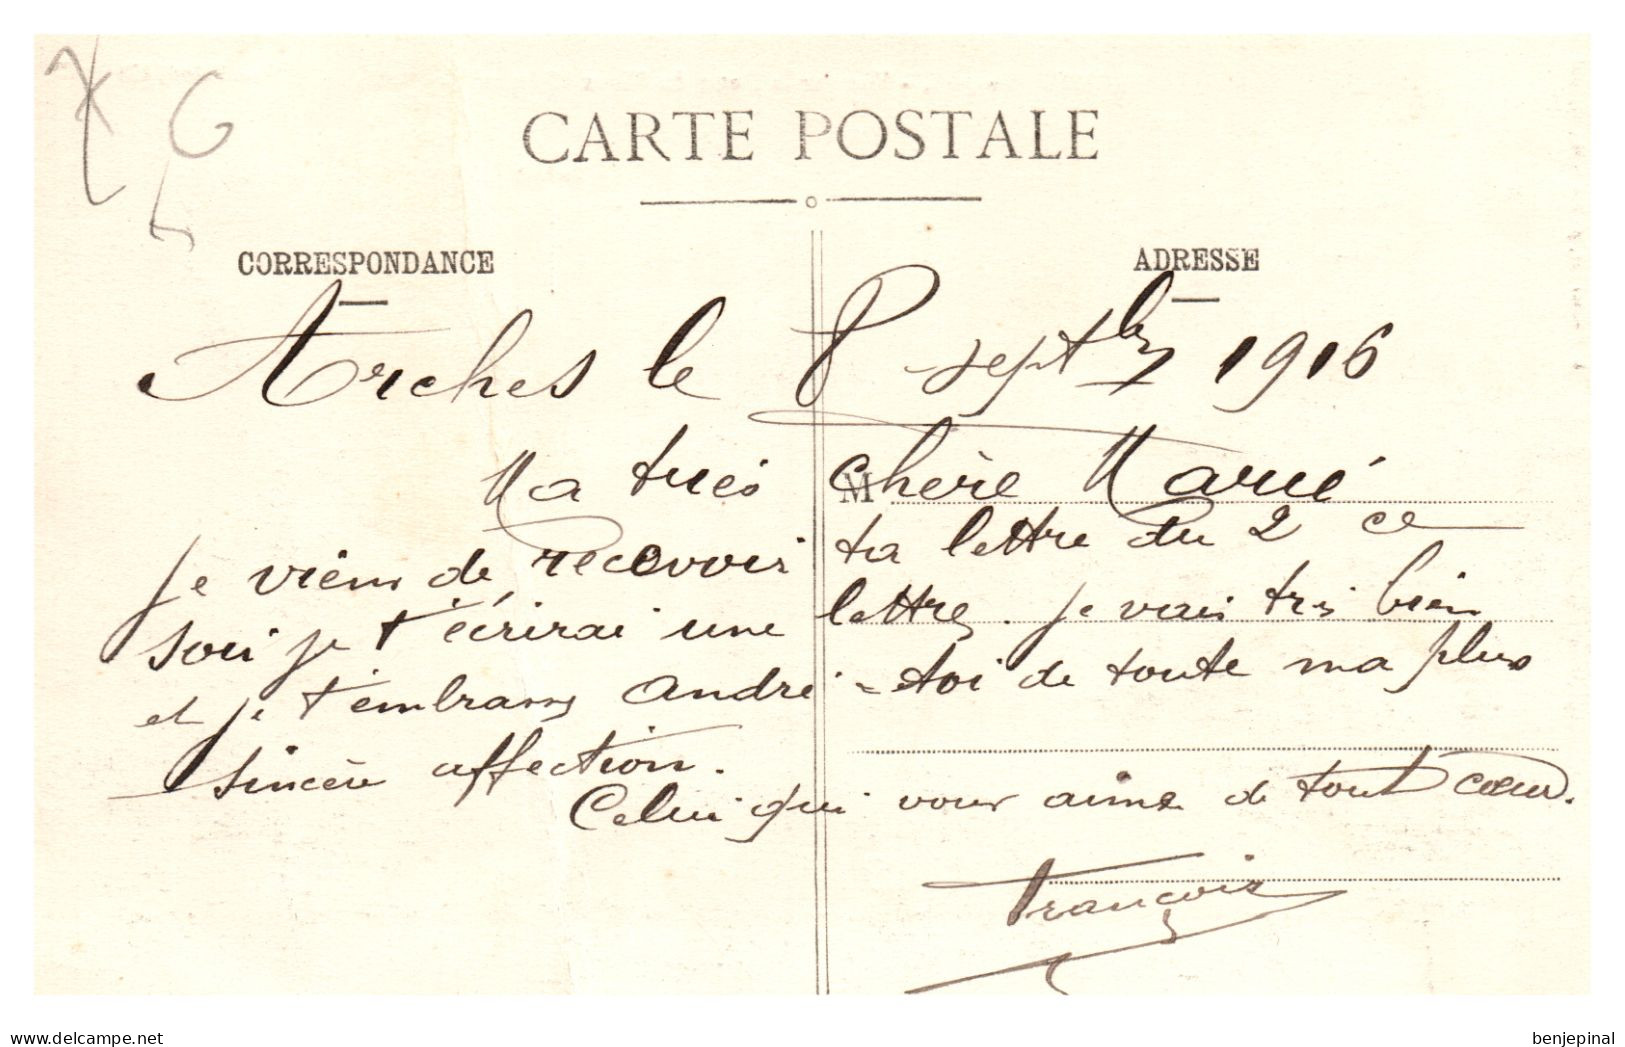 CARTE POSTALE
CORRESPONDANCE
ADRESSE
Arches le 8 septbre 1916
Ma très chère Marie
M
je viens de recevoir ta lettre du 2 ce
soir je t'écrirai une lettre. je vais très bien
et je t'embrasse André = toi de toute ma plus
sincère affection.
Celui qui vous aime de tout cœur.
François
www.delcampe.net
benjepinal